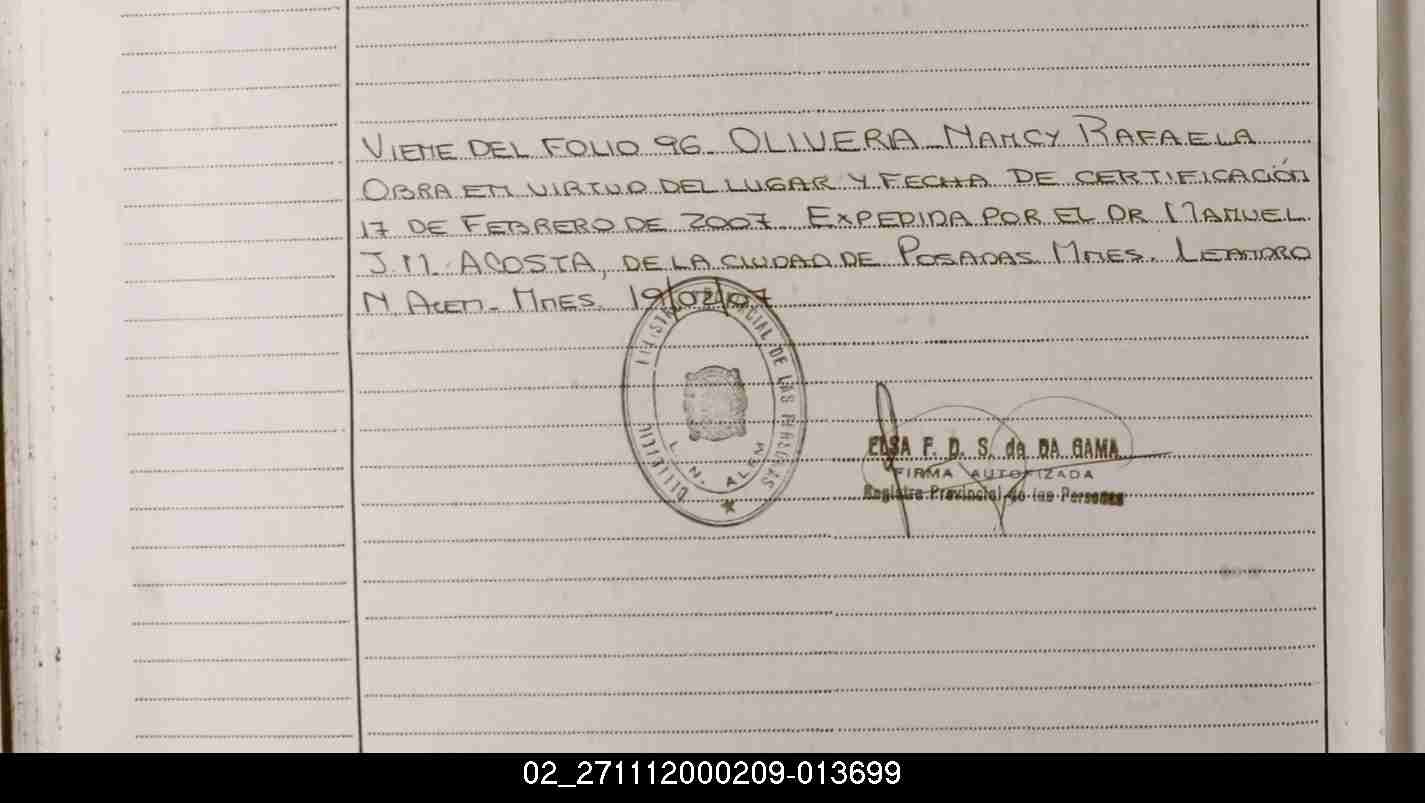 VIENE DEL FOLIO 96. OLIVERA NANCY RAFAELA
OBRA EN VIRTUD DEL LUGAR Y FECHA DE CERTIFICACIÓN
17 DE FEBRERO DE 2007. EXPEDIDA POR EL DR MANUEL
J.M. ACOSTA, DE LA CIUDAD DE POSADAS MNES. LEANDRO
N. ALEM. MNES. 19/02/07
DE LAS PERSONAS
L. N. ALEM
ELSA F. D. S. de DA GAMA
FIRMA AUTORIZADA
Registro Provincial de las Personas
02_271112000209-013699